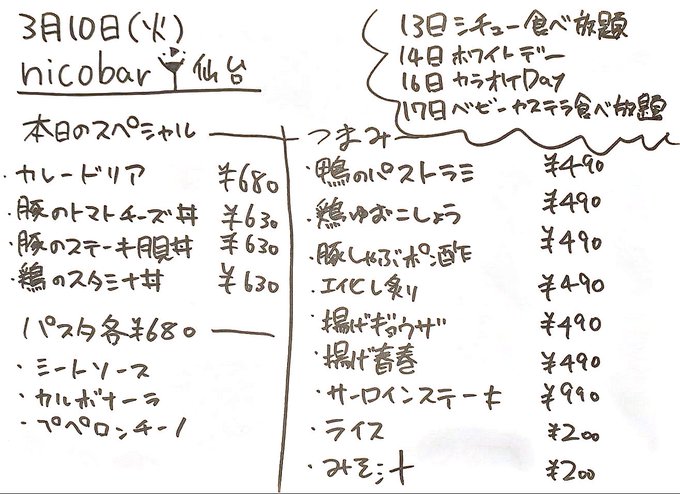 3月10日(火)
nicobar 仙台
13日 シチュー食べ放題
14日 ホワイトデー
16日 カラオケDay
17日 ベビーカステラ食べ放題
本日のスペシャル
・カレードリア ¥680
・豚のトマトチーズ丼 ¥630
・豚のステーキ丼 ¥630
・鶏のスタミナ丼 ¥630
パスタ各¥680
・ミートソース
・カルボナーラ
・ペペロンチーノ
つまみ
・鴨のパストラミ ¥490
・鶏ゆずこしょう ¥490
・豚しゃぶポン酢 ¥490
・エイヒレ炙り ¥490
・揚げギョウザ ¥490
・揚げ春巻 ¥490
・サーロインステーキ ¥990
・ライス ¥200
・みそ汁 ¥200